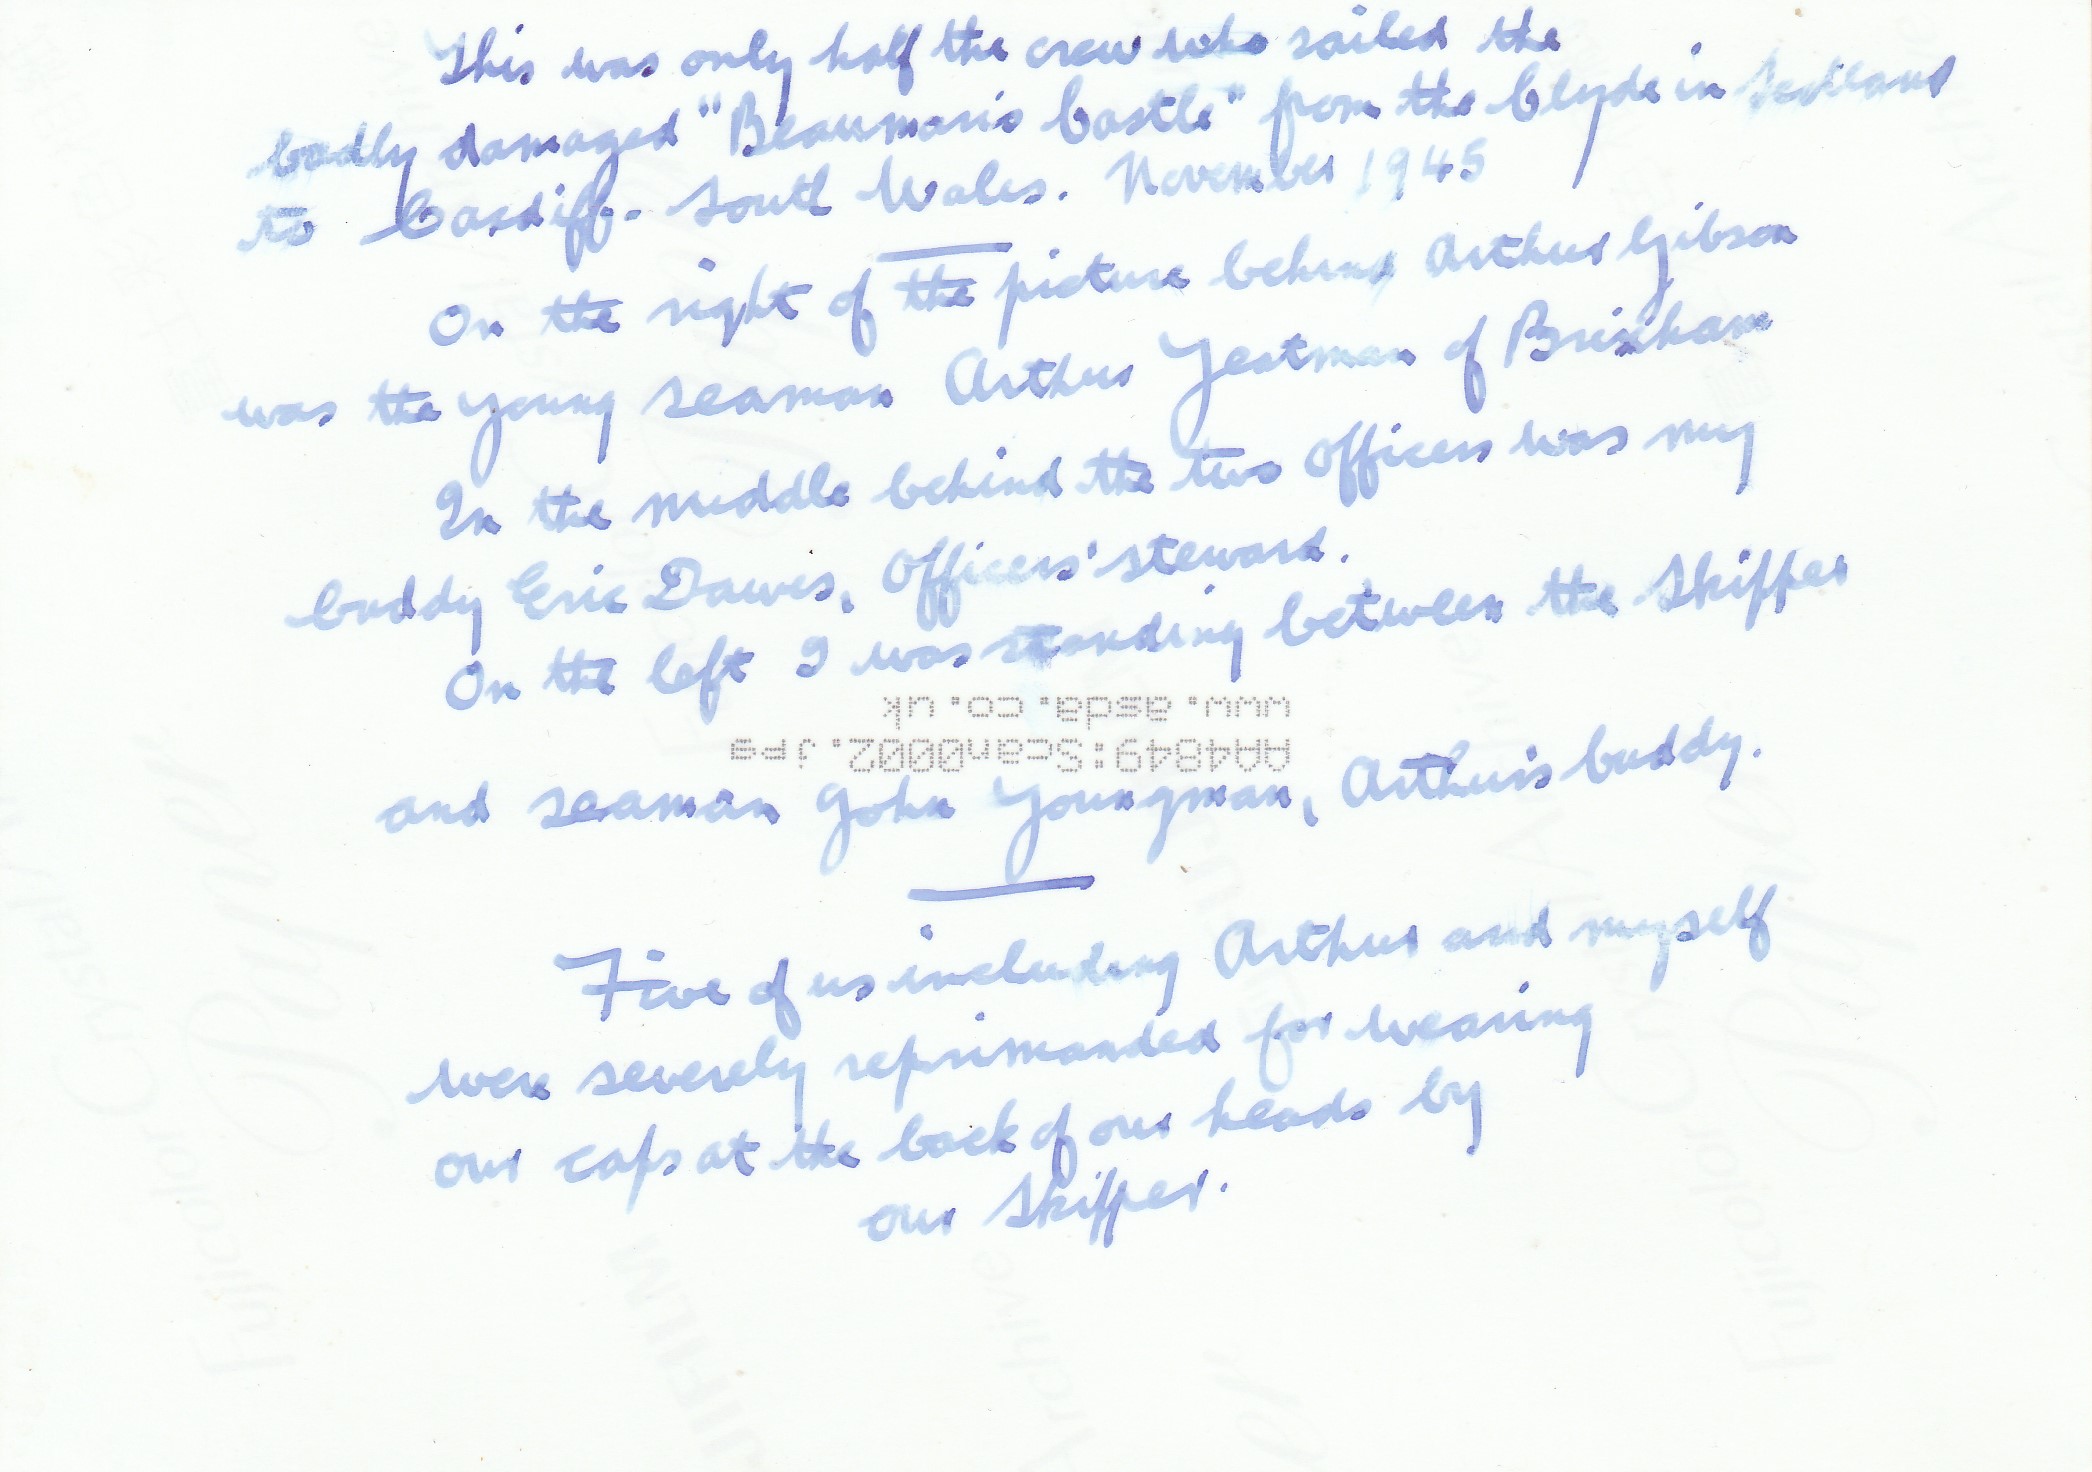 This was only half the crew who sailed the
badly damaged "Beaumaris Castle" from the Clyde in Scotland
to Cardiff. South Wales. November 1945
On the right of the picture behind Arthur Gibson
was the young seaman Arthur Yeatman of Brixham
In the middle behind the two officers was my
buddy Eric Dawes, Officers' steward.
On the left I was standing between the Skipper
www.asda.co.uk
AA44849:Scan00002.Jpg
and seaman John Youngman, Arthur's buddy.
Five of us including Arthur and myself
were severely reprimanded for wearing
our caps at the back of our heads by
our Skipper.